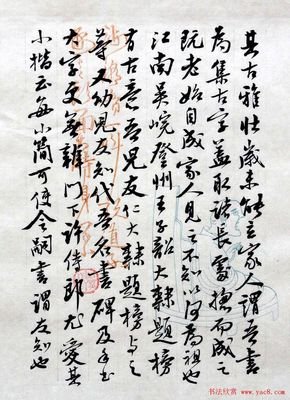 其古雅壮歲未能立家人謂吾書
為集古字蓋取諸長處揔而成之
既老始自成家人見之不知以何為祖也
江南吳皖登州王子韶大隸題榜
有古意吾兒友仁大隸題榜与之
等又幼兒友知代吾名書碑及手書
大字更無辨門下許侍郎尤愛其
小楷云每小簡可使令嗣書謂友知也
书法欣赏 www.yac8.com